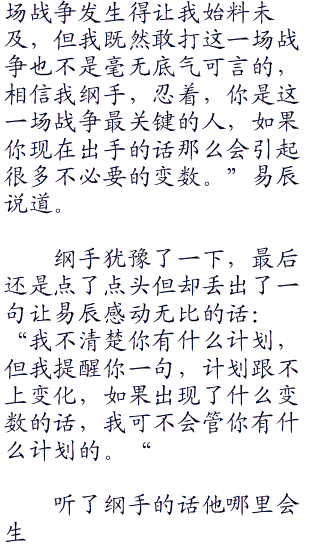 场战争发生得让我始料未
及，但我既然敢打这一场战
争也不是毫无底气可言的，
相信我纲手，忍着，你是这
一场战争最关键的人，如果
你现在出手的话那么会引起
很多不必要的变数。”易辰
说道。
纲手犹豫了一下，最后
还是点了点头但却丢出了一
句让易辰感动无比的话：
“我不清楚你有什么计划，
但我提醒你一句，计划跟不
上变化，如果出现了什么变
数的话，我可不会管你有什
么计划的。“
听了纲手的话他哪里会
生